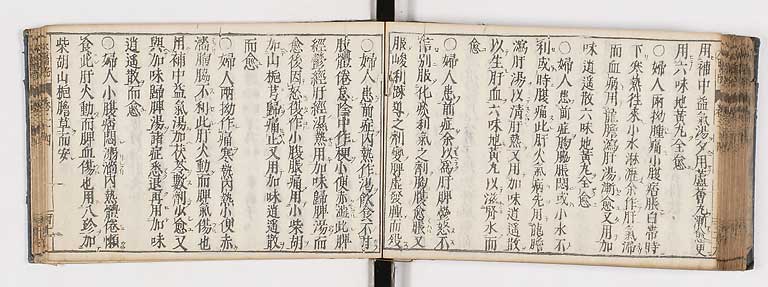 用補中益氣湯夕用蘆薈丸漸愈更
用六味地黃丸全愈
○婦人兩拗腫痛小腹痞脹白帶時
下寒熱往來小水淋瀝余作肝氣滯
而血病用龍膽瀉肝湯漸愈又用加
味逍遙散六味地黃丸全愈
○婦人患前症脇脹悶或小水不
利或時腹痛此肝火氣病先用龍膽
瀉肝湯以清肝熱又用加味逍遙散
以生肝血六味地黃丸以滋腎水而
愈
○婦人患前症余以為肝脾鬱怒不
信別服化痰利氣之劑胸腹愈脹又
服峻利疎導之劑變脾虛發腫而歿
○婦人患前症內熱作渴飲食不甘
肢體倦怠陰中作梗小便赤澁此脾
經鬱結肝經濕熱用加味歸脾湯而
愈後因怒復作小腹脹痛用小柴胡
加山梔芎歸痛止又用加味逍遙散
而愈
○婦人兩拗作痛寒熱內熱小便赤
澁胸脇不利此肝火動而脾氣傷也
用補中益氣湯加茯苓數劑少愈又
與加味歸脾湯諸症悉退再用加味
逍遙散而愈
○婦人小腹痛悶澁滴內熱體倦懶
食此肝火動而脾血傷也用八珍加
柴胡山梔膽草而安